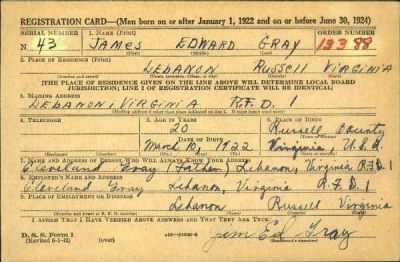 REGISTRATION CARD—(Men born on or after January 1, 1922 and on or before June 30, 1924)
SERIAL NUMBER 1. NAME (Print) ORDER NUMBER
N 43 JAMES EDWARD GRAY 13388
(First) (Middle) (Last)
2. PLACE OF RESIDENCE (Print)
LEBANON RUSSELL VIRGINIA
(Number and street) (Town, township, village, or city) (County) (State)
[THE PLACE OF RESIDENCE GIVEN ON THE LINE ABOVE WILL DETERMINE LOCAL BOARD
JURISDICTION; LINE 2 OF REGISTRATION CERTIFICATE WILL BE IDENTICAL]
3. MAILING ADDRESS
LEBANON, VIRGINIA R.F.D. 1
4. TELEPHONE 5. AGE IN YEARS 6. PLACE OF BIRTH
20 Russell County
DATE OF BIRTH
March 10, 1922 Virginia, U.S.A.
7. NAME AND ADDRESS OF PERSON WHO WILL ALWAYS KNOW YOUR ADDRESS
Cleveland Gray (Father) Lebanon, Virginia R.F.D. 1
8. EMPLOYER'S NAME AND ADDRESS
Cleveland Gray Lebanon, Virginia R.F.D. 1
9. PLACE OF EMPLOYMENT OR BUSINESS
Lebanon Russell Virginia
(Number and street or R. F. D. number) (Town) (County) (State)
I AFFIRM THAT I HAVE VERIFIED ABOVE ANSWERS AND THAT THEY ARE TRUE.
D. S. S. Form 1
(Revised 6-1-42) (over) Jim Ed Gray
(Registrant's signature)